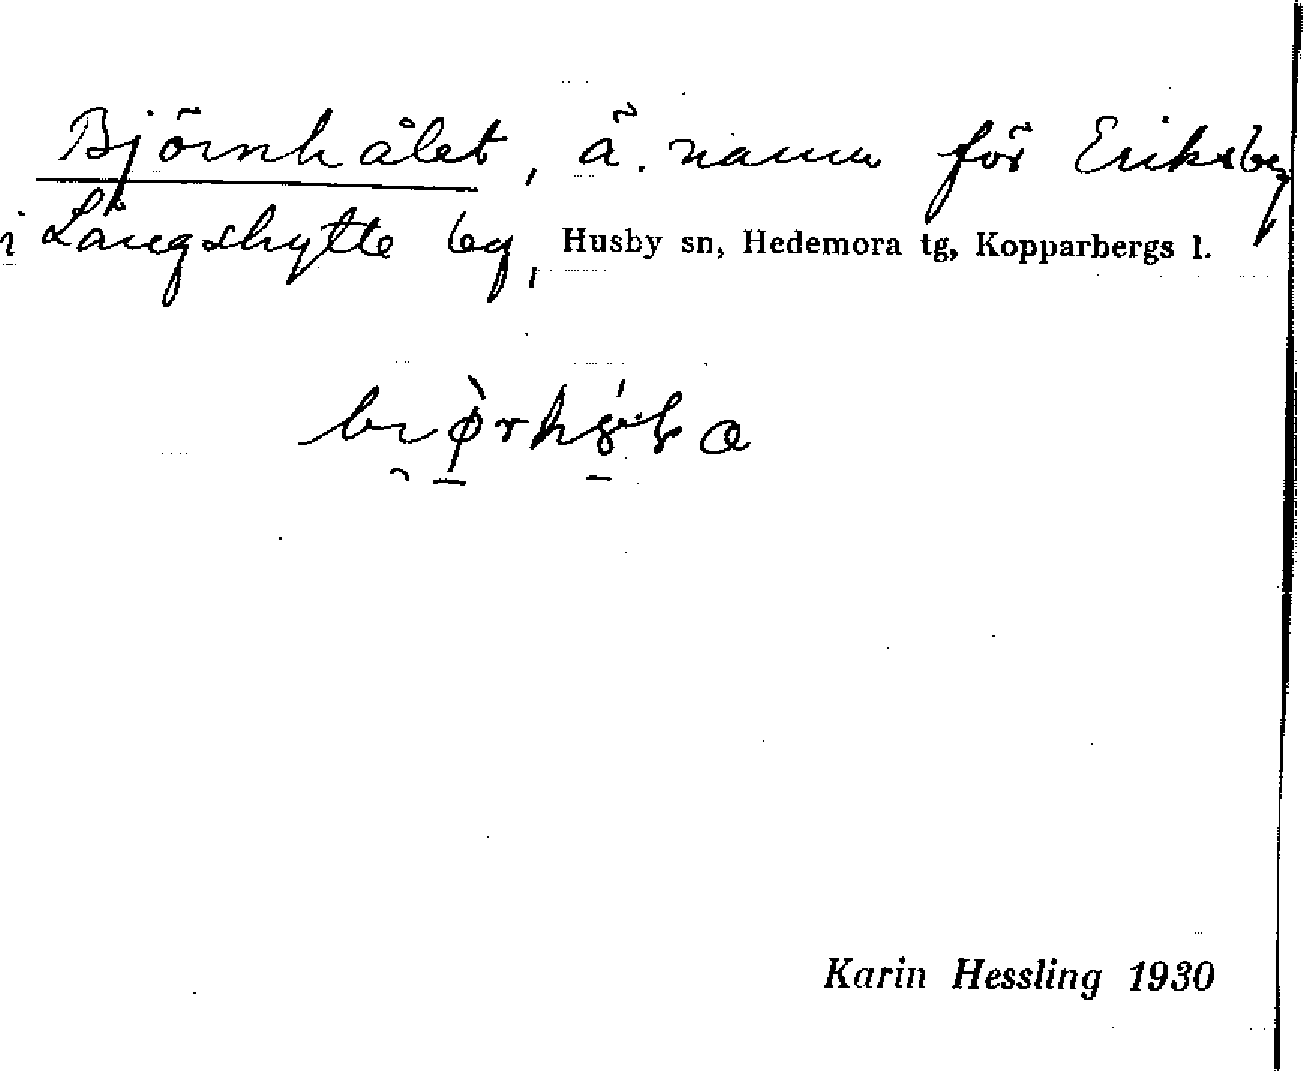 Björnhålet, ä. namn för Eriksby
i Långshytte by, Husby sn, Hedemora tg, Kopparbergs l.
Karin Hessling 1930